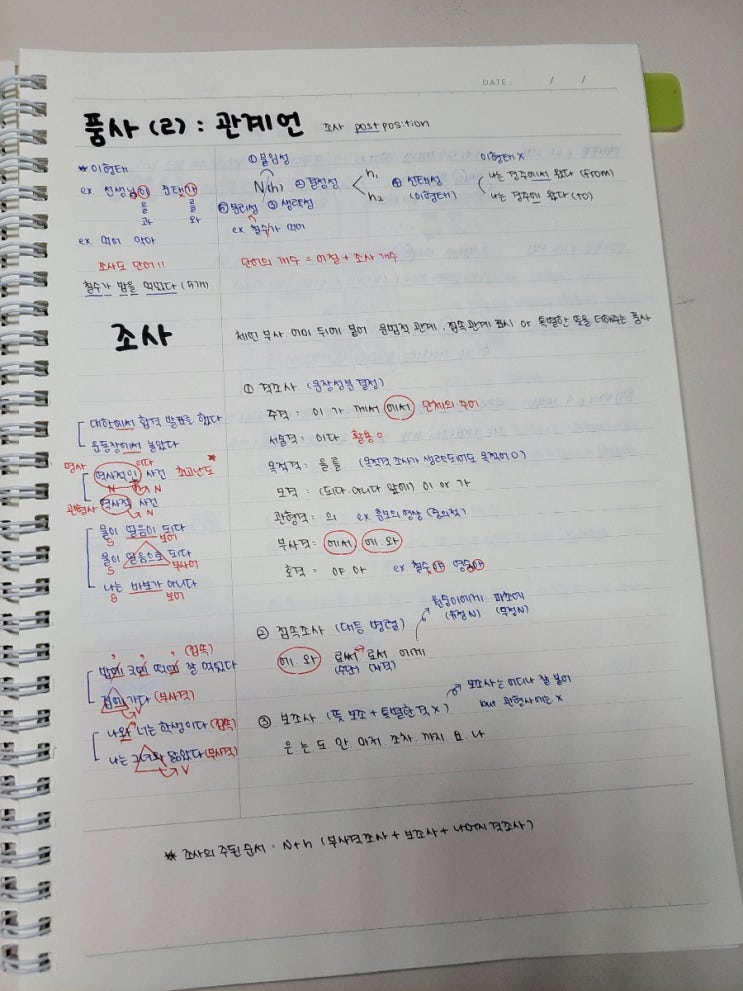 DATE : / /
품사 (2) : 관계언 조사 postposition
* 이형태
ex 선생님이
을 를
과 와
ex 먹어 잡아
조사도 단어!!
철수가 밥을 먹었다 (5개)
① 몰입성
N(h) ② ③ 생략성 ④ 선택성
분리성 (이형태)
h₁
h₂
ex 철수가 먹어
이형태 X
나는 경주에서 왔다 (from)
나는 경주에 왔다 (to)
단어의 개수 = 어절 + 조사 개수
조사
체언 부사 어미 뒤에 붙어 문법적 관계, 접속 관계 표시 or 특별한 뜻을 더해주는 품사
① 격조사 (문장성분 결정)
주격 : 이 가 께서 에서 단체의 주어
서술격 : 이다 활용 O
목적격 : 을 를 (목적격 조사가 생략되어도 목적어 O)
보격 : (되다 아니다 앞에) 이 or 가
관형격 : 의 ex 홍보의 영상 (중의적)
부사격 : 에서 에 와
호격 : 야 아 ex 철수야 영숙아
대학에서 합격 발표를 했다
운동장에서 놀았다
명사 이다
역사적인 사건 최고난도 *
N N
관형사 역사적 사건
N
물이 얼음이 되다
S 보어
물이 얼음으로 되다
S 부사어
나는 바보가 아니다
S 보어
② 접속조사 (대등 병렬)
에 와 로써 로서 에게
(수단) (자격)
(유정N) (무정N)
(접속)
밥에 국에 떡에 잘 먹었다
집에 가다 (부사격)
V
나와 너는 학생이다 (접속)
나는 그녀와 닮았다 (부사격)
V
③ 보조사 (뜻 보조 + 특별한 격 X)
보조사는 어디나 잘 붙어
but 관형사에는 X
은 는 도 만 마저 조차 까지 요 나
* 조사의 주된 순서 : N+h (부사격조사 + 보조사 + 나머지 격조사)